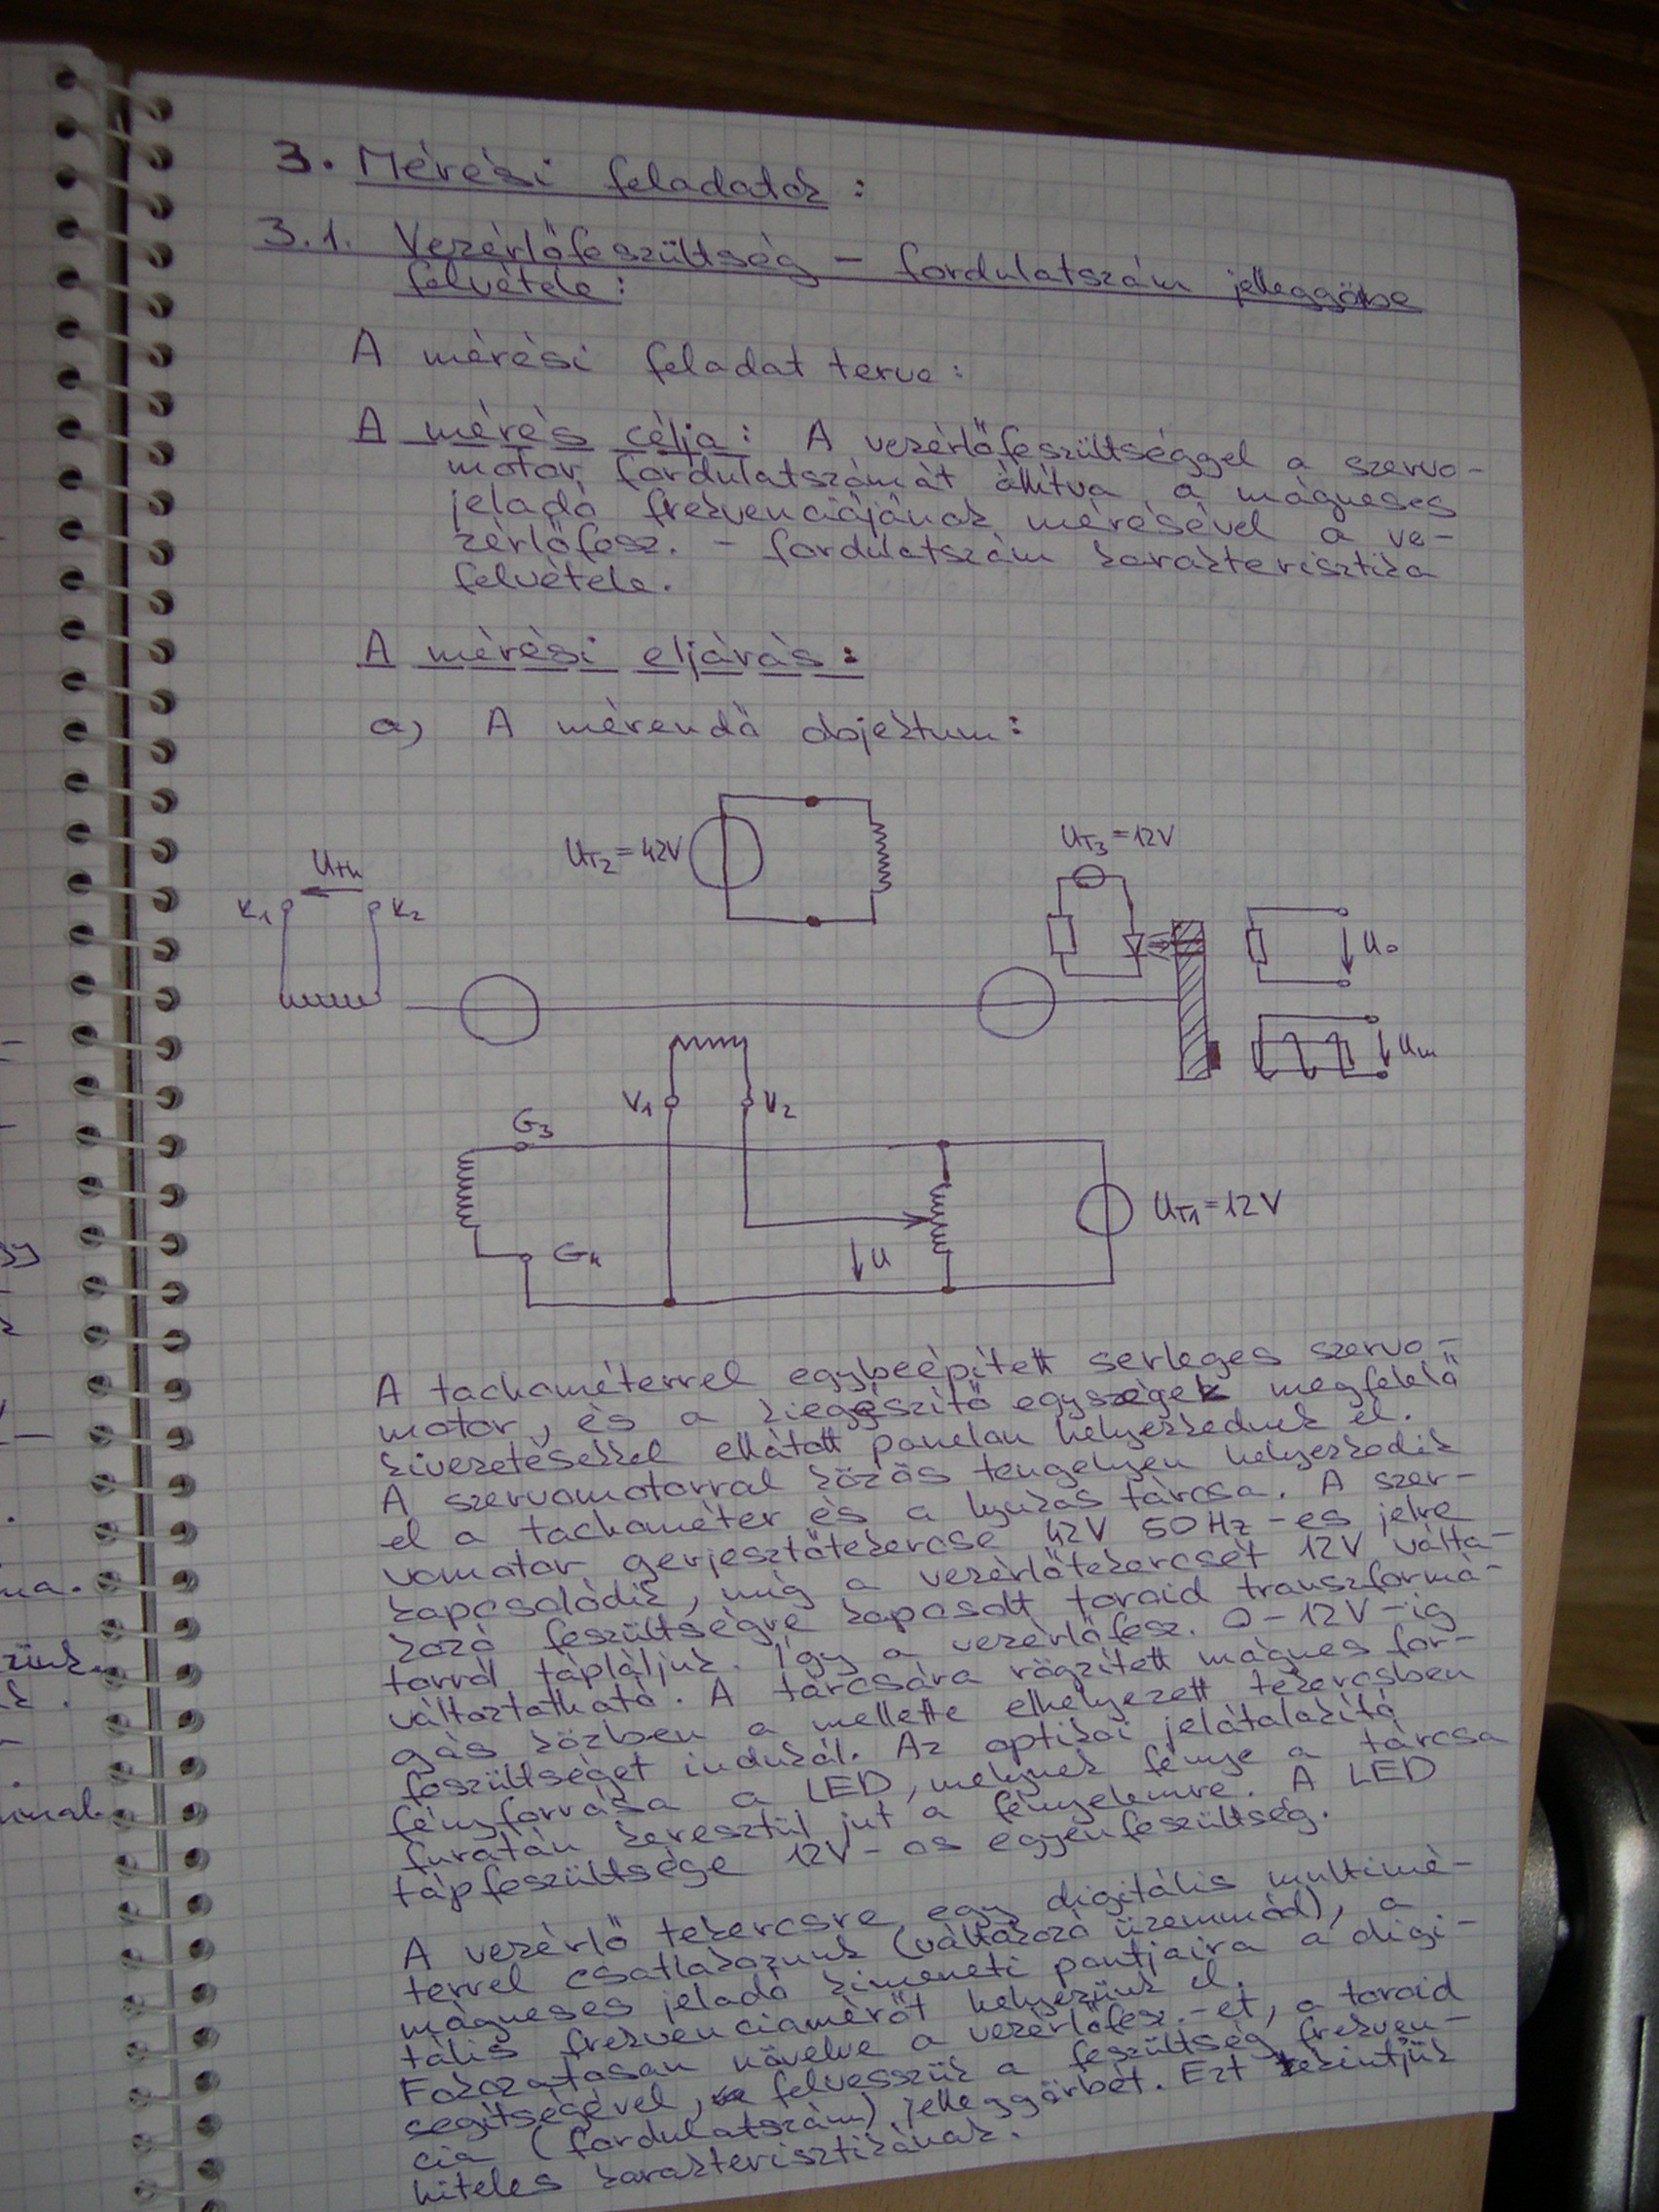 3. Mérési feladatok:
3.1. Vezérlőfeszültség - fordulatszám jelleggörbe
felvétele:
A mérési feladat terve:
A mérés célja: A vezérlőfeszültséggel a szervo-
motor fordulatszámát állítva, a mágneses
jeladó frekvenciájának mérésével a ve-
zérlőfesz. - fordulatszám karakterisztika
felvétele.
A mérési eljárás:
a) A mérendő objektum:
UT2=42V
UT3=12V
Uth
K1 K2
Uo
Um
V1 V2
G3
UT1=12V
G4
U
A tachométerrel egybeépített serleges szervo-
motor, és a kiegészítő egységek megfelelő
kivezetésekkel ellátott panelon helyezkednek el.
A szervomotorral közös tengelyen helyezkedik
el a tachométer és a lyukas tárcsa. A szer-
vomotor gerjesztőtekercse 42V 50Hz-es jelre
kapcsolódik, míg a vezérlőtekercset 12V válta-
kozó feszültségre kapcsolt toroid transzformá-
torról tápláljuk. Így a vezérlőfesz. 0-12V-ig
változtatható. A tárcsára rögzített mágnes for-
gás közben a mellette elhelyezett tekercsben
feszültséget indukál. Az optikai jelátalakító
fényforrása a LED, melynek fénye a tárcsa
furatán keresztül jut a fényelemre. A LED
tápfeszültsége 12V-os egyenfeszültség.
A vezérlő tekercsre egy digitális multimé-
terrel csatlakozunk (váltakozó üzemmód), a
mágneses jeladó kimeneti pontjaira a digi-
tális frekvenciamérőt helyezzük el.
Fokozatosan növelve a vezérlőfesz.-et, a toroid
segítségével, felvesszük a feszültség frekven-
cia (fordulatszám) jelleggörbét. Ezt tekintjük
hiteles karakterisztikának.